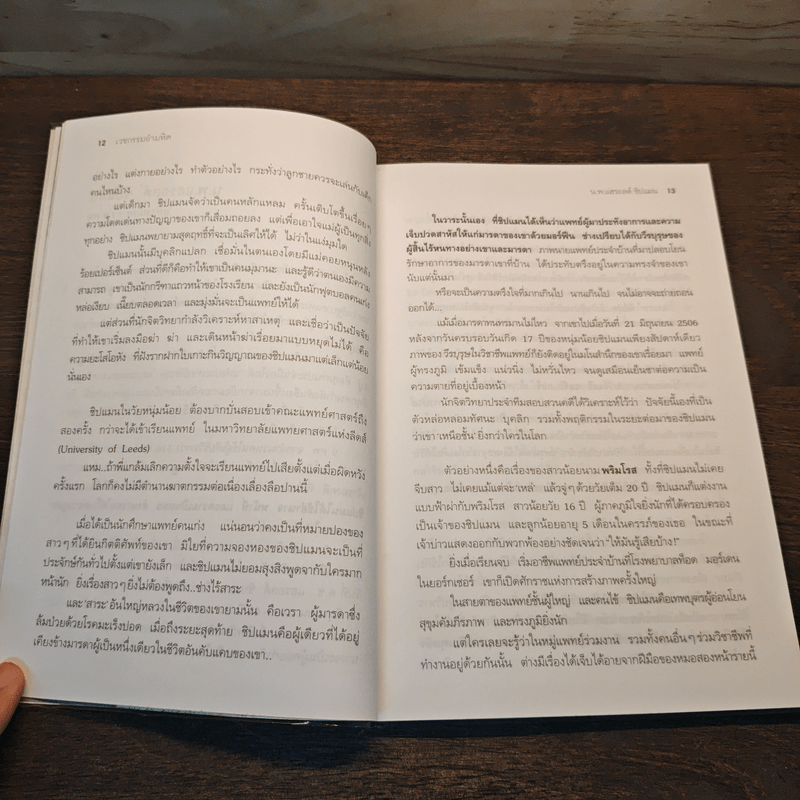 12 เวชกรรมอำมหิต
อย่างไร แต่งกายอย่างไร ทำตัวอย่างไร กระทั่งว่าลูกชายควรจะเล่นกับเด็ก
คนไหนบ้าง
แต่เด็กมา ชิปแมนจัดว่าเป็นคนหลักแหลม ครั้นเติบโตขึ้นเรื่อยๆ
ความโดดเด่นทางปัญญาของเขาก็เสื่อมถอยลง แต่เพื่อเอาใจแม่ผู้เป็นทุกสิ่ง
ทุกอย่าง ชิปแมนพยายามสุดฤทธิ์ที่จะเป็นเลิศให้ได้ ไม่ว่าในแง่มุมใด
ชิปแมนนั้นมีบุคลิกแปลก เชื่อมั่นในตนเองโดยมีแม่คอยหนุนหลัง
ร้อยเปอร์เซ็นต์ ส่วนที่ดีก็คือทำให้เขาเป็นคนมุมานะ และรู้ดีว่าตนเองมีความ
สามารถ เขาเป็นนักกรีฑาแถวหน้าของโรงเรียน และยังเป็นนักฟุตบอลคนเก่ง
หล่อเงียบ เนี้ยบตลอดเวลา และมุ่งมั่นจะเป็นแพทย์ให้ได้
แต่ส่วนที่นักจิตวิทยากำลังวิเคราะห์หาสาเหตุ และเชื่อว่าเป็นปัจจัย
ที่ทำให้เขาเริ่มลงมือฆ่า ฆ่า และเดินหน้าฆ่าเรื่อยมาแบบหยุดไม่ได้ คือ
ความยะโสโอหัง ที่ฝังรากฝากใบเกาะกินวิญญาณของชิปแมนมาแต่เล็กแต่น้อย
นั่นเอง
ชิปแมนในวัยหนุ่มน้อย ต้องบากบั่นสอบเข้าคณะแพทย์ศาสตร์ถึง
สองครั้ง กว่าจะได้เข้าเรียนแพทย์ ในมหาวิทยาลัยแพทยศาสตร์แห่งลีดส์
(University of Leeds)
แหม..ถ้าพี่แกล้มเลิกความตั้งใจจะเรียนแพทย์ไปเสียตั้งแต่เมื่อผิดหวัง
ครั้งแรก โลกก็คงไม่มีตำนานฆาตกรรมต่อเนื่องเลื่องลือปานนี้
เมื่อได้เป็นนักศึกษาแพทย์คนเก่ง แน่นอนว่าคงเป็นที่หมายปองของ
สาวๆที่ได้ยินกิตติศัพท์ของเขา มิไยที่ความจองหองของชิปแมนจะเป็นที่
ประจักษ์กันทั่วไปตั้งแต่เขายังเล็ก และชิปแมนไม่ยอมสุงสิงพูดจากับใครมาก
หน้านัก ยิ่งเรื่องสาวๆยิ่งไม่ต้องพูดถึง..ช่างไร้สาระ
และ'สาระ'อันใหญ่หลวงในชีวิตของเขายามนั้น คือเวรา ผู้มารดาซึ่ง
ล้มป่วยด้วยโรคมะเร็งปอด เมื่อถึงระยะสุดท้าย ชิปแมนคือผู้เดียวที่ได้อยู่
เคียงข้างมารดาผู้เป็นหนึ่งเดียวในชีวิตอันคับแคบของเขา..
น.พ.แฮรอลด์ ชิปแมน 13
ในวาระนั้นเอง ที่ชิปแมนได้เห็นว่าแพทย์ผู้มาประทังอาการและความ
เจ็บปวดสาหัสให้แก่มารดาของเขาด้วยมอร์ฟีน ช่างเปรียบได้กับวีรบุรุษของ
ผู้สิ้นไร้หนทางอย่างเขาและมารดา ภาพนายแพทย์ประจำบ้านที่มาปลอบโยน
รักษาอาการของมารดาเขาที่บ้าน ได้ประทับตรึงอยู่ในความทรงจำของเขา
นับแต่นั้นมา
หรือจะเป็นความตรึงใจที่มากเกินไป นานเกินไป จนไม่อาจจะถ่ายถอน
ออกได้...
แม้เมื่อมารดาทนทานไม่ไหว จากเขาไปเมื่อวันที่ 21 มิถุนายน 2506
หลังจากวันครบรอบวันเกิด 17 ปีของหนุ่มน้อยชิปแมนเพียงสัปดาห์เดียว
ภาพของวีรบุรุษในวิชาชีพแพทย์ก็ยังติดอยู่ในมโนสำนึกของเขาเรื่อยมา แพทย์
ผู้ทรงภูมิ เข้มแข็ง แน่วนิ่ง ไม่หวั่นไหว จนดูเสมือนเย็นชาต่อความเป็น
ความตายที่อยู่เบื้องหน้า
นักจิตวิทยาประจำทีมสอบสวนคดีได้วิเคราะห์ไว้ว่า ปัจจัยนี้เองที่เป็น
ตัวหล่อหลอมทัศนะ บุคลิก รวมทั้งพฤติกรรมในระยะต่อมาของชิปแมน
ว่าเขา'เหนือชั้น'ยิ่งกว่าใครในโลก
ตัวอย่างหนึ่งคือเรื่องของสาวน้อยนาม พริมโรส ทั้งที่ชิปแมนไม่เคย
จีบสาว ไม่เคยแม้แต่จะ'เหล่' แล้วจู่ๆด้วยวัยเต็ม 20 ปี ชิปแมนก็แต่งงาน
แบบฟ้าผ่ากับพริมโรส สาวน้อยวัย 16 ปี ผู้ภาคภูมิใจยิ่งนักที่ได้ครอบครอง
เป็นเจ้าของชิปแมน และลูกน้อยอายุ 5 เดือนในครรภ์ของเธอ ในขณะที่
เจ้าบ่าวแสดงออกกับพวกพ้องอย่างชัดเจนว่า"ให้มันรู้เสียบ้าง!"
ยิ่งเมื่อเรียนจบ เริ่มอาชีพแพทย์ประจำบ้านที่โรงพยาบาลท็อด มอร์เดน
ในยอร์กเชอร์ เขาก็เปิดศักราชแห่งการสร้างภาพครั้งใหญ่
ในสายตาของแพทย์ชั้นผู้ใหญ่ และคนไข้ ชิปแมนคือเทพบุตรผู้อ่อนโยน
สุขุมคัมภีรภาพ และทรงภูมิยิ่งนัก
แต่ใครเลยจะรู้ว่าในหมู่แพทย์ร่วมงาน รวมทั้งคนอื่นๆร่วมวิชาชีพที่
ทำงานอยู่ด้วยกันนั้น ต่างมีเรื่องได้เจ็บได้อายจากฝีมือของหมอสองหน้ารายนี้